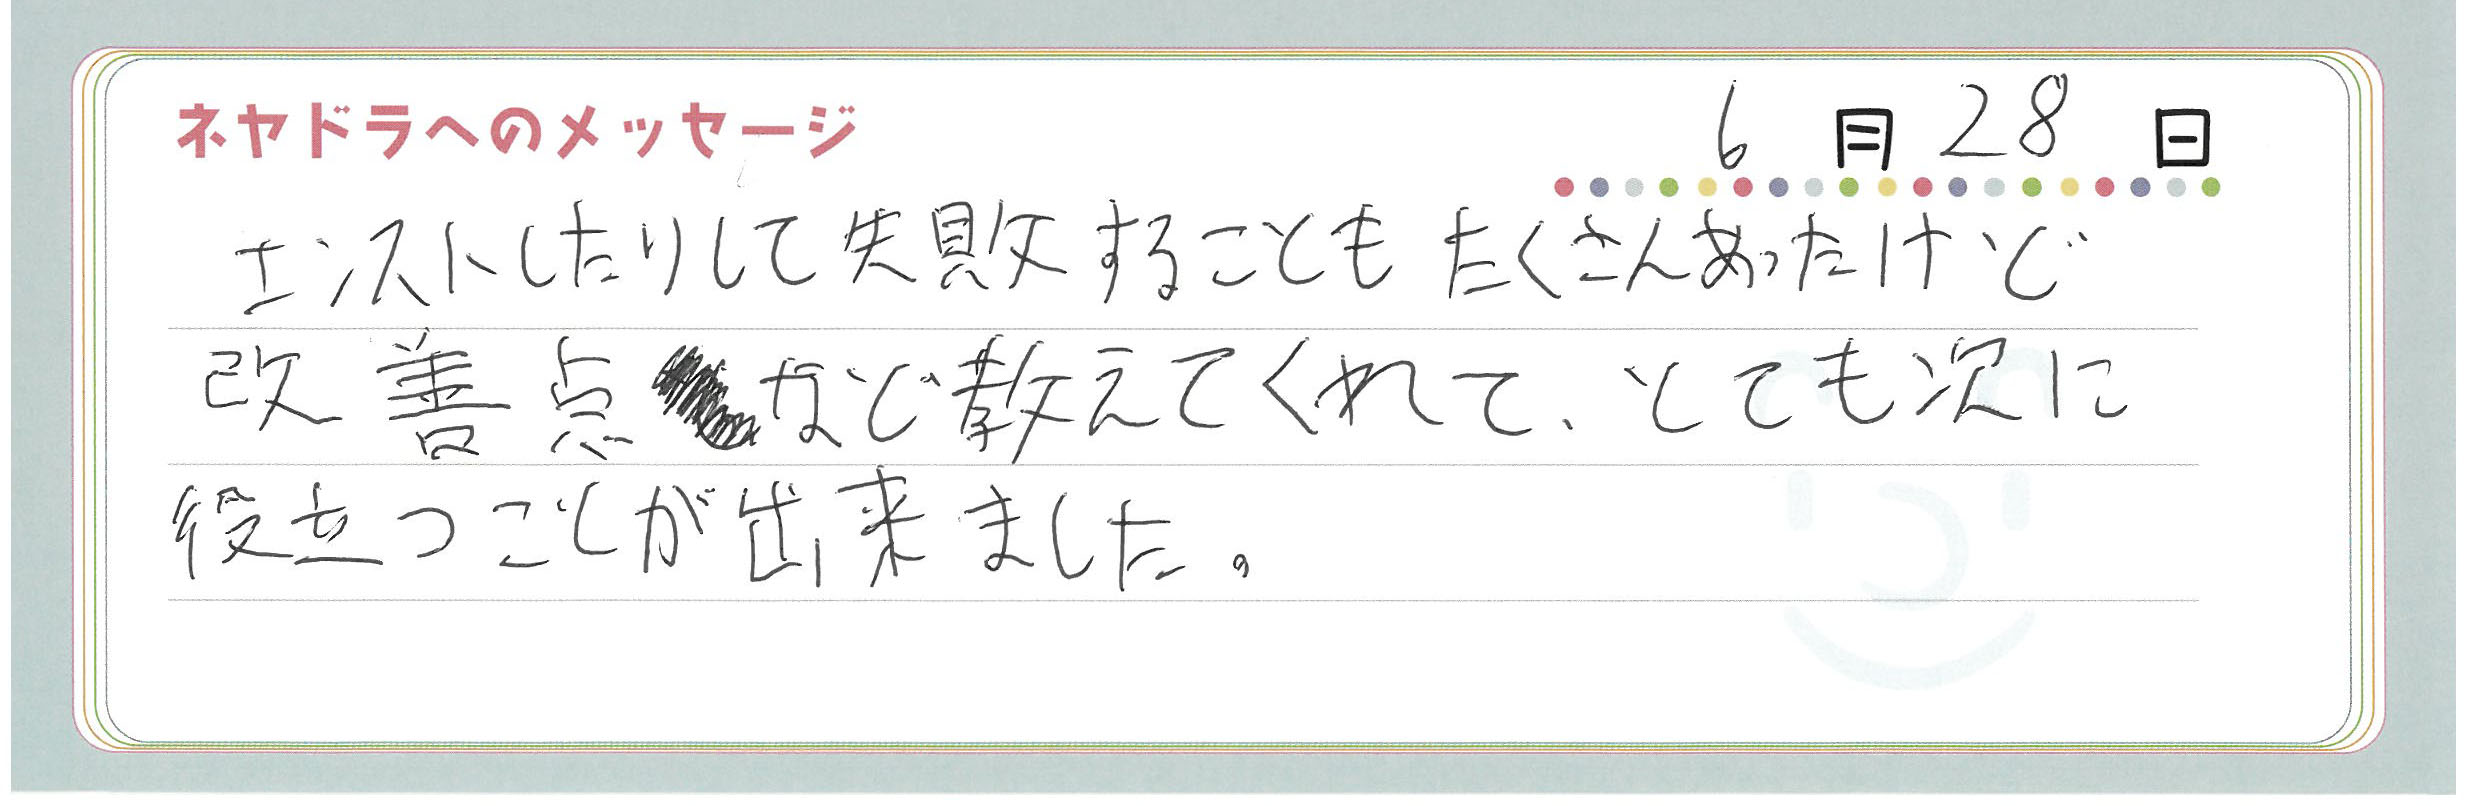 ネヤドラへのメッセージ
6月28日
エンストしたりして失敗することもたくさんあったけど
改善点など教えてくれて、とても次に
役立つことが出来ました。